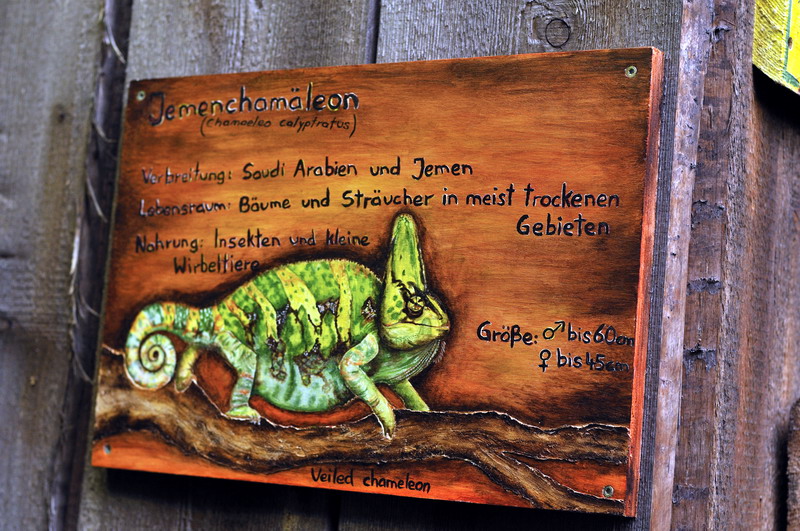 Jemenchamäleon
(Chamaeleo calyptratus)
Verbreitung: Saudi Arabien und Jemen
Lebensraum: Bäume und Sträucher in meist trockenen
Gebieten
Nahrung: Insekten und kleine
Wirbeltiere
Größe: ♂ bis 60cm
♀ bis 45cm
Veiled chameleon